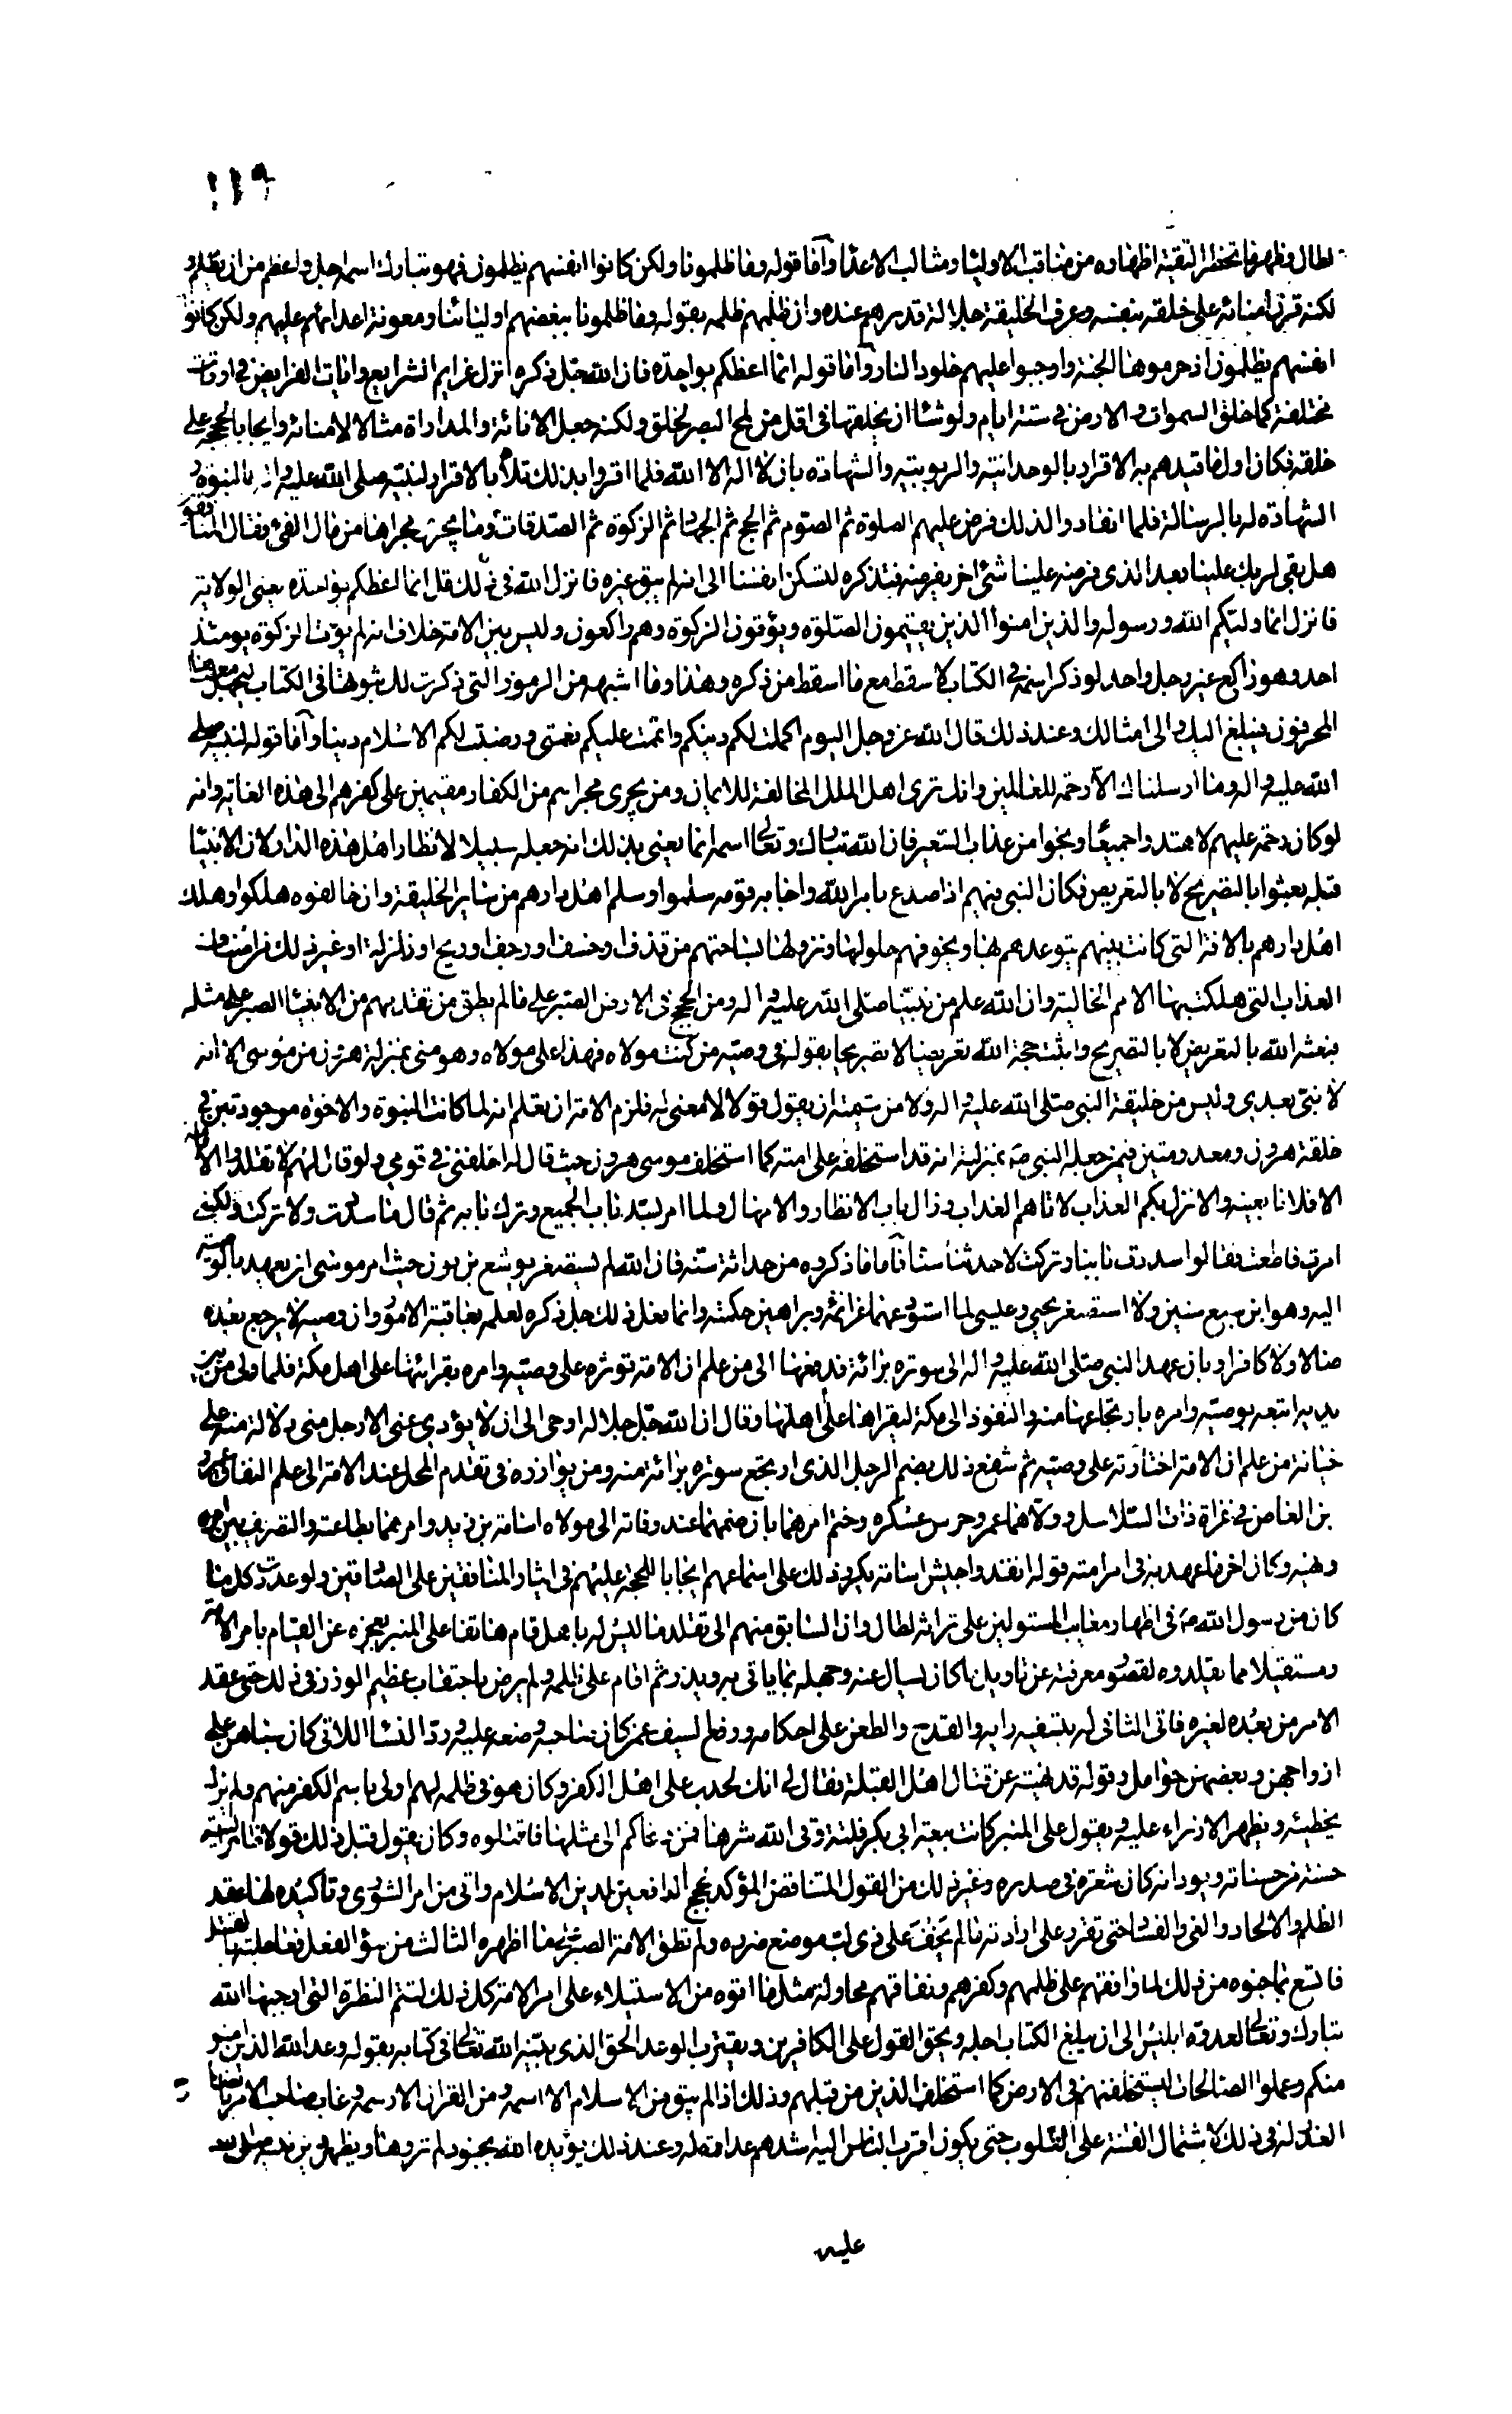 ١١٩
لطال وظهر ما تحظر التقية اظهاره من مناقب الاولياء ومثالب الاعداء واما قوله وما ظلمونا ولكن كانوا انفسهم يظلمون فهو تبارك اسمه اجل واعظم من ان يظلم و
لكنه قرن امنائه على خلقه بنفسه وعرف الخليقة جلالة قدرهم عنده وان ظلمهم ظلمه بقوله وما ظلمونا ببغضهم اوليائنا ومعونة اعدائهم عليهم ولكن كانوا
انفسهم يظلمون اذ حرموها الجنة واوجبوا عليهم خلود النار واما قوله انما اعظكم بواحدة فان الله جل ذكره انزل عزايم الشرايع وايات الفرايض في اوقات
مختلفة كما خلق السموات والارض في ستة ايام ولو شاء ان يخلقها في اقل من لمح البصر لخلق ولكنه جعل الاناة والمداراة مثالا لامنائه وايجابا للحجة على
خلقه فكان اول ما قيدهم به الاقرار بالوحدانية والربوبية والشهادة بان لا اله الا الله فلما اقروا بذلك تلاه بالاقرار لنبيه صلى الله عليه واله بالنبوة و
الشهادة له بالرسالة فلما انقادوا لذلك فرض عليهم الصلوة ثم الصوم ثم الحج ثم الجهاد ثم الزكوة ثم الصدقات وما يجرى مجراها من مال الفئ فقال المنافقون
هل بقى لربك علينا بعد الذى فرضه علينا شئ اخر يفرضه فتذكره لتسكن انفسنا الى انه لم يبق غيره فانزل الله في ذلك قل انما اعظكم بواحدة يعنى الولاية
فانزل انما وليكم الله ورسوله والذين امنوا الذين يقيمون الصلوة ويؤتون الزكوة وهم راكعون وليس بين الامة خلاف انه لم يؤت الزكوة يومئذ
احد وهو راكع غير رجل واحد لو ذكر اسمه في الكتاب لاسقط مع ما اسقط من ذكره وهذا وما اشبهه من الرموز التى ذكرت لك ثبوتها في الكتاب ليجهل معناها
المحرفون فيبلغ اليك والى امثالك وعند ذلك قال الله عز وجل اليوم اكملت لكم دينكم واتممت عليكم نعمتى ورضيت لكم الاسلام دينا واما قوله لنبيه صلى
الله عليه واله وما ارسلناك الا رحمة للعالمين وانك ترى اهل الملل المخالفة للايمان ومن يجرى مجراهم من الكفار مقيمين على كفرهم الى هذه الغاية وانه
لو كان رحمة عليهم لاهتدوا جميعا ونجوا من عذاب السعير فان الله تبارك وتعالى اسمه انما يعنى بذلك انه جعله سبيلا لانظار اهل هذه الدار لان الانبياء
قبله بعثوا بالتصريح لا بالتعريض فكان النبى منهم اذا صدع بامر الله واجابه قومه سلموا وسلم اهل دارهم من ساير الخليقة وان خالفوه هلكوا وهلك
اهل دارهم بالافة التى كانت بينهم يتوعدهم بها ويخوفهم حلولها ونزولها بساحتهم من قذف او خسف او رجف او ريح او زلزلة او غير ذلك من اصناف
العذاب التى هلكت بها الامم الخالية وان الله علم من نبينا صلى الله عليه واله ومن الحجج في الارض الصبر على ما لم يطق من تقدمهم من الانبياء الصبر على مثله
فبعثه الله بالتعريض لا بالتصريح واثبت حجة الله تعريضا لا تصريحا بقوله في وصيه من كنت مولاه فهذا على مولاه وهو منى بمنزلة هرون من موسى الا انه
لا نبى بعدى وليس من خليقة النبى صلى الله عليه واله ولا من شيمته ان يقول قولا لا معنى له فلزم الامة ان تعلم انه لما كانت النبوة والاخوة موجودتين في
خلقة هرون ومعدومتين فيمن جعله النبى ص بمنزلته انه قد استخلفه على امته كما استخلف موسى هرون حيث قال له اخلفنى في قومى ولو قال لهم لا تقلدوا الامامة
الا فلانا بعينه والا نزل بكم العذاب لاتاهم العذاب وزال باب الانظار والامهال ولما امر بسد باب الجميع وترك بابه ثم قال ما سددت ولا تركت ولكننى
امرت فاطعت فقالوا سددت بابنا وتركت لاحدثنا سنا فاما ما ذكروه من حداثة سنه فان الله لم يستصغر يوشع بن نون حيث امر موسى ان يعهد بالوصية
اليه وهو ابن سبع سنين ولا استصغر يحيى وعيسى لما استودعهما عزائمه وبراهين حكمته وانما فعل ذلك جل ذكره لعلمه بعاقبة الامور وان وصيه لا يرجع بعده
ضالا ولا كافرا وبان عهد النبى صلى الله عليه واله الى سورة برائة فدفعها الى من علم ان الامة تؤثره على وصيه وامره بقرائتها على اهل مكة فلما ولى من بين
يديه اتبعه بوصيه وامره بارتجاعها منه والنفوذ الى مكة ليقراها على اهلها وقال ان الله جل جلاله اوحى الى ان لا يؤدى عنى الا رجل منى دلالة منه على
خيانة من علم ان الامة اختارته على وصيه ثم شفع ذلك بضم الرجل الذى ارتجع سورة برائة منه ومن يوازره في تقدم المحل عند الامة الى علم النفاق عمرو
بن العاص في غزاة ذات السلاسل وولاهما عمرو حرس عسكره وختم امرهما بان ضمهما عند وفاته الى مولاه اسامة بن زيد وامرهما بطاعته والتصريف بين امره
ونهيه وكان اخر ما عهد به في امر امته قوله انفذوا جيش اسامة يكرر ذلك على اسماعهم ايجابا للحجة عليهم في ايثار المنافقين على الصادقين ولو عددت كل ما
كان من رسول الله ص في اظهار معايب المستولين على تراثه لطال وان السابق منهم الى تقلد ما ليس له باهل قام هاتفا على المنبر لعجزه عن القيام بامر الامة
ومستقيلا مما يقلدوه لقصور معرفته عن تاويل ما كان يسال عنه وجهله بما ياتى به ويذر ثم اقام على ظلمه ولم يرض باحتقاب عظيم الوزر في ذلك حتى عقد
الامر من بعده لغيره فاتى الثانى له بتسفيه رايه والقدح والطعن على احكامه ورفع السيف عمن كان صاحبه وضعه عليه ورد النساء اللاتى كان سباهن على
ازواجهن وبعضهن حوامل وقوله قد نهيته عن قتال اهل القبلة فقال لى انك لحدب على اهل الكفر وكان هو في ظلمه لهم اولى باسم الكفر منهم ولم يزل
يخطئه ويظهر الازراء عليه ويقول على المنبر كانت بيعة ابى بكر فلتة وقى الله شرها فمن دعاكم الى مثلها فاقتلوه وكان يقول قبل ذلك قولا
حسنة من حسناته ويود انه كان شعرة في صدره وغير ذلك من القول المتناقض المؤكد لحجج الدافعين لدين الاسلام واتى من امر الشورى وتاكيده لها عقد
الظلم والالحاد والغى والفساد حتى تقرر على ارادته ما لم يخف على ذى لب موضع ضرره ولم تطق الامة الصبر على ما اظهره الثالث من سوء الفعل فعاجلته بالقتل
فاتسع بما جنوه من ذلك لما وافقهم على ظلمهم وكفرهم ونفاقهم محاولة مثل ما اتوه من الاستيلاء على امر الامة كل ذلك لتتم النظرة التى اوجبها الله
تبارك وتعالى لعدوه ابليس الى ان يبلغ الكتاب اجله ويحق القول على الكافرين ويقترب الوعد الحق الذى بينه الله تعالى في كتابه بقوله وعد الله الذين امنوا
منكم وعملوا الصالحات ليستخلفنهم في الارض كما استخلف الذين من قبلهم وذلك اذا لم يبق من الاسلام الا اسمه ومن القران الا رسمه وغاب صاحب الامر بايضاح
العذر له في ذلك لاشتمال الفتنة على القلوب حتى يكون اقرب الناس اليه اشدهم عداوة له وعند ذلك يؤيده الله بجنود لم تروها ويظهر دين نبيه صلى الله
عليه